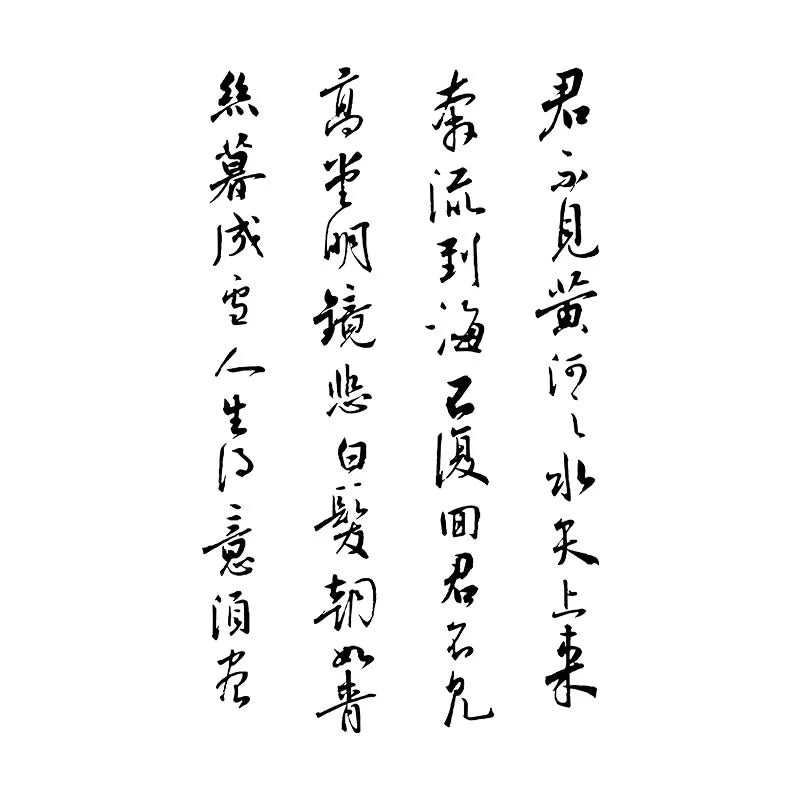 君不見黄河之水天上来
奔流到海不復回君不見
高堂明鏡悲白髮朝如青
絲暮成雪人生得意須盡